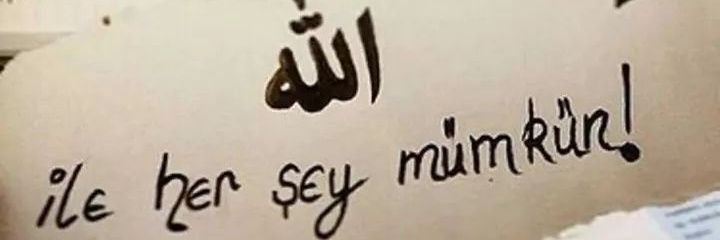 الله
ile her şey mümkün!